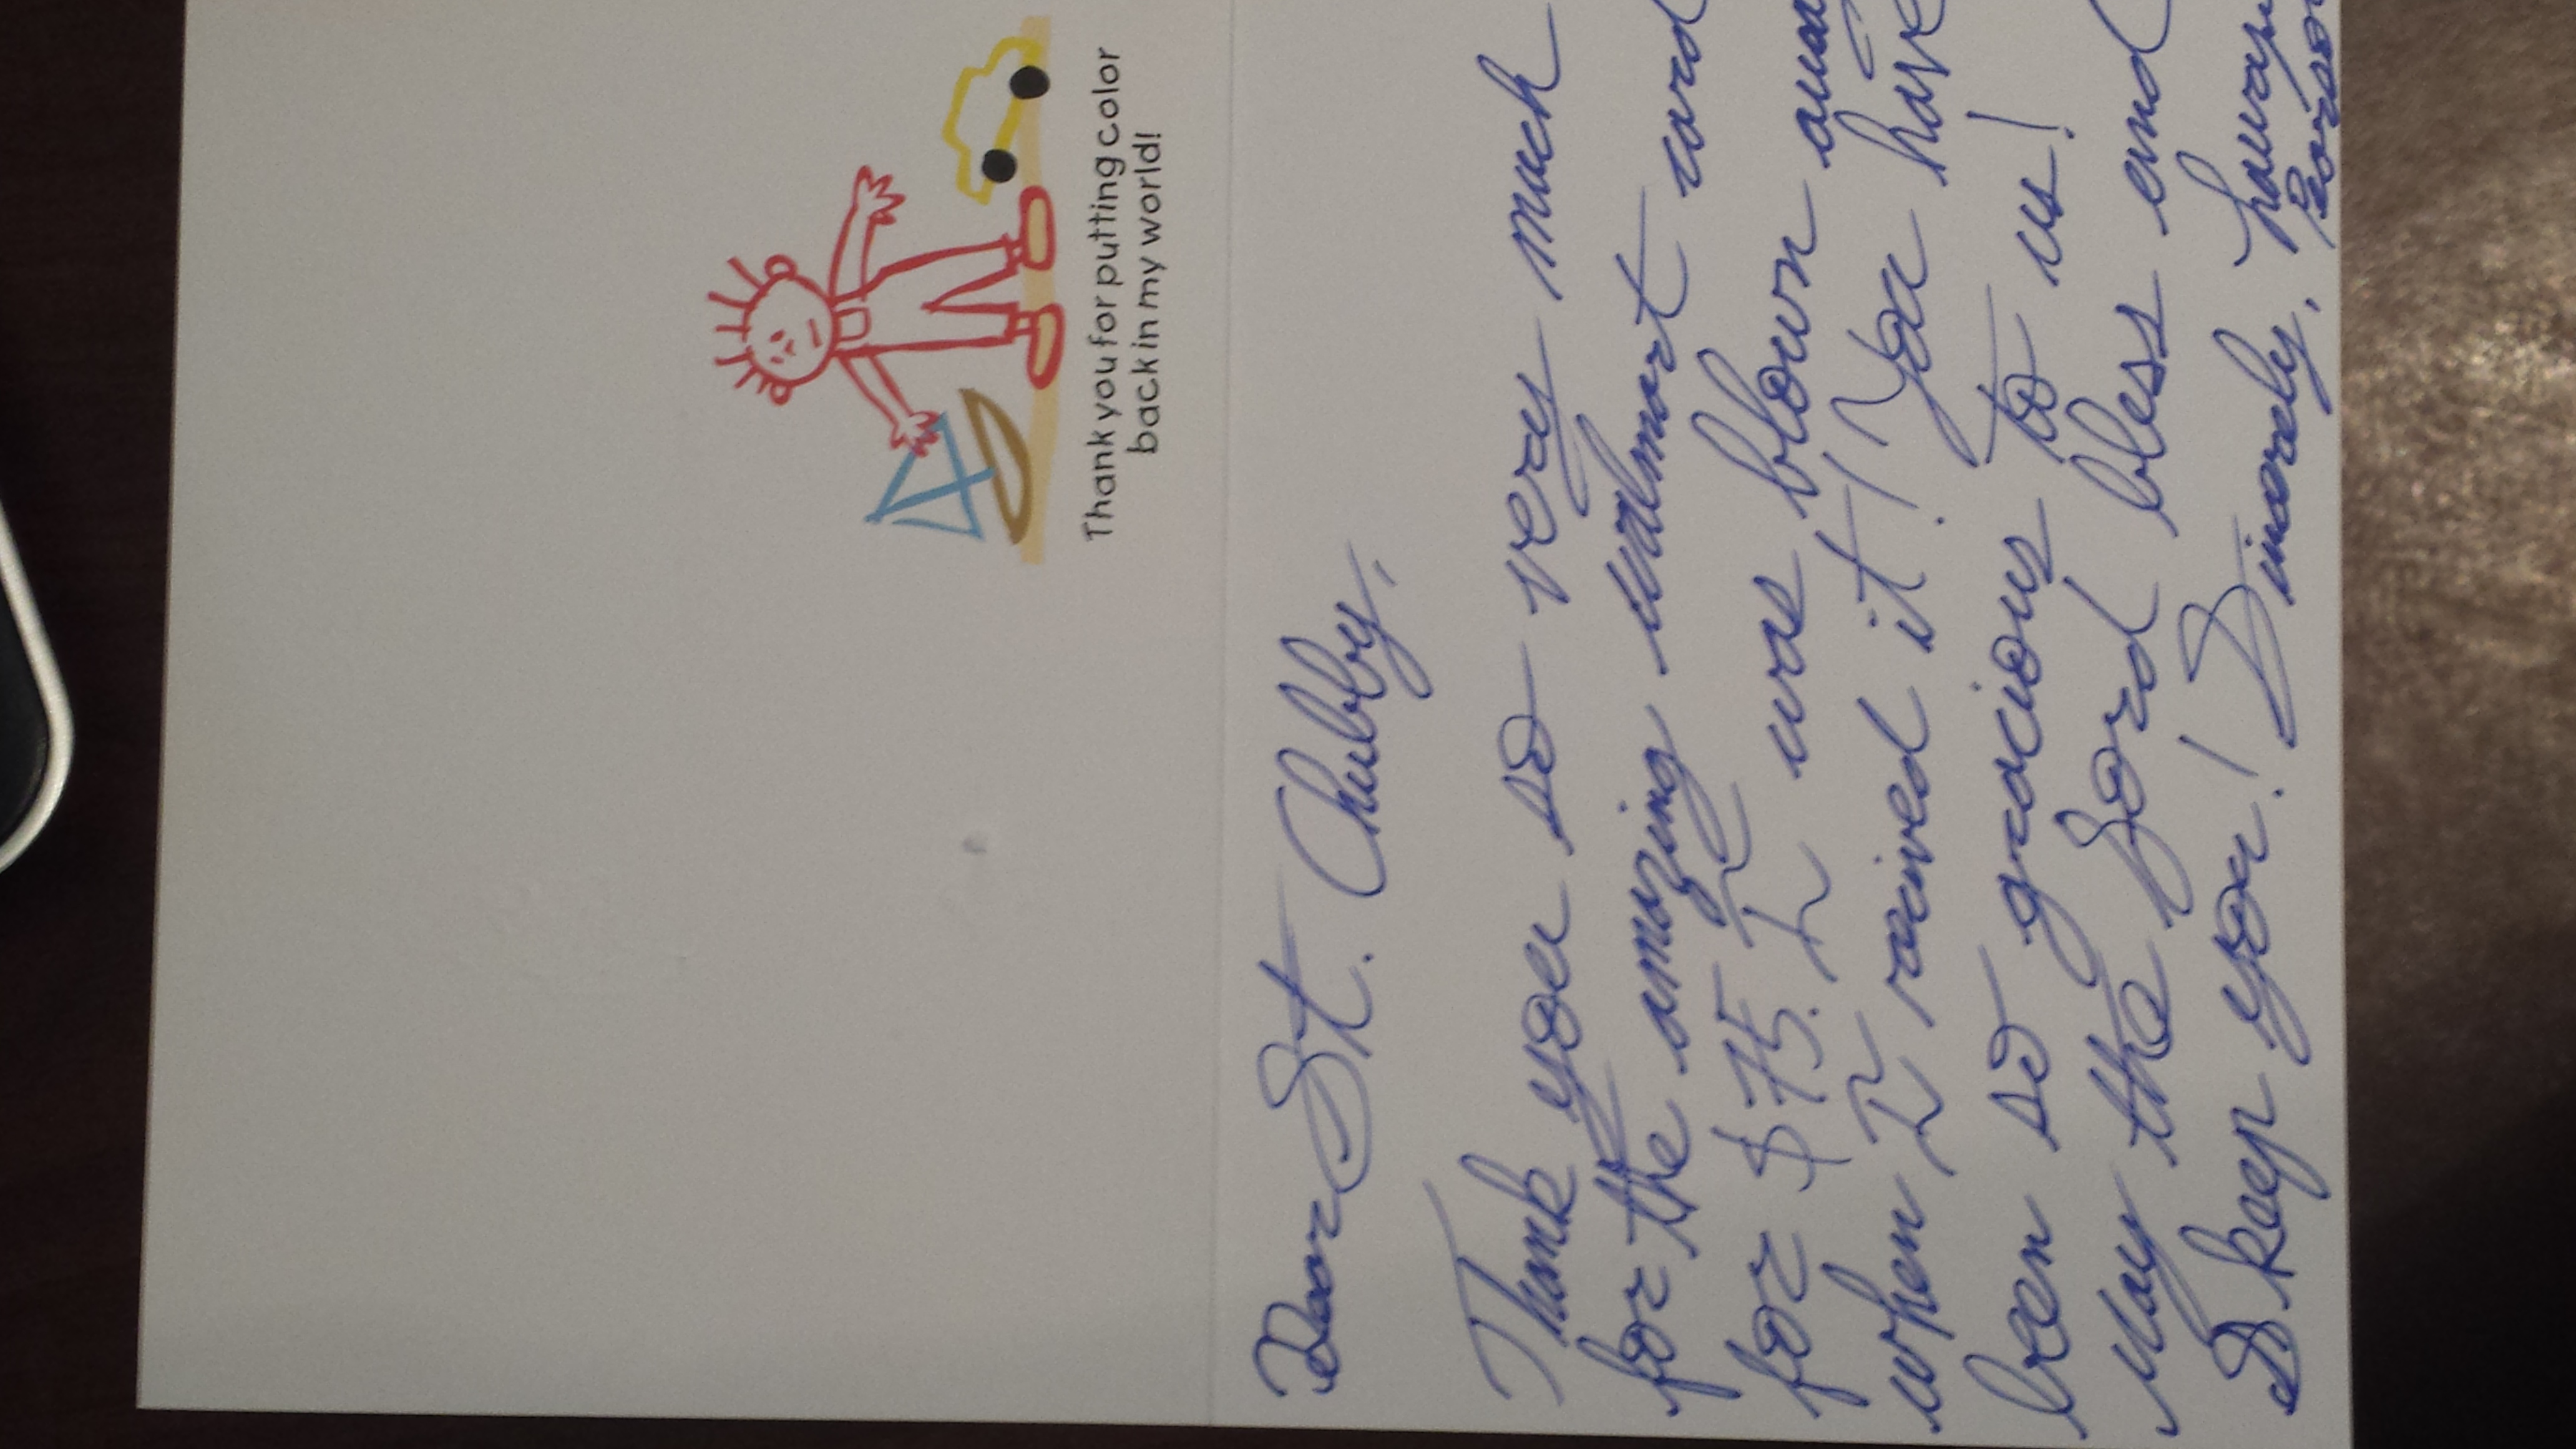 Thank you for putting color
back in my world!
Dear St. Chubby,
Thank you so very much
for the amazing walmart card
for $75. I was blown away
when I recived it! You have
been so gracious to us!
May the Lord bless and
keep you! Sincerely,